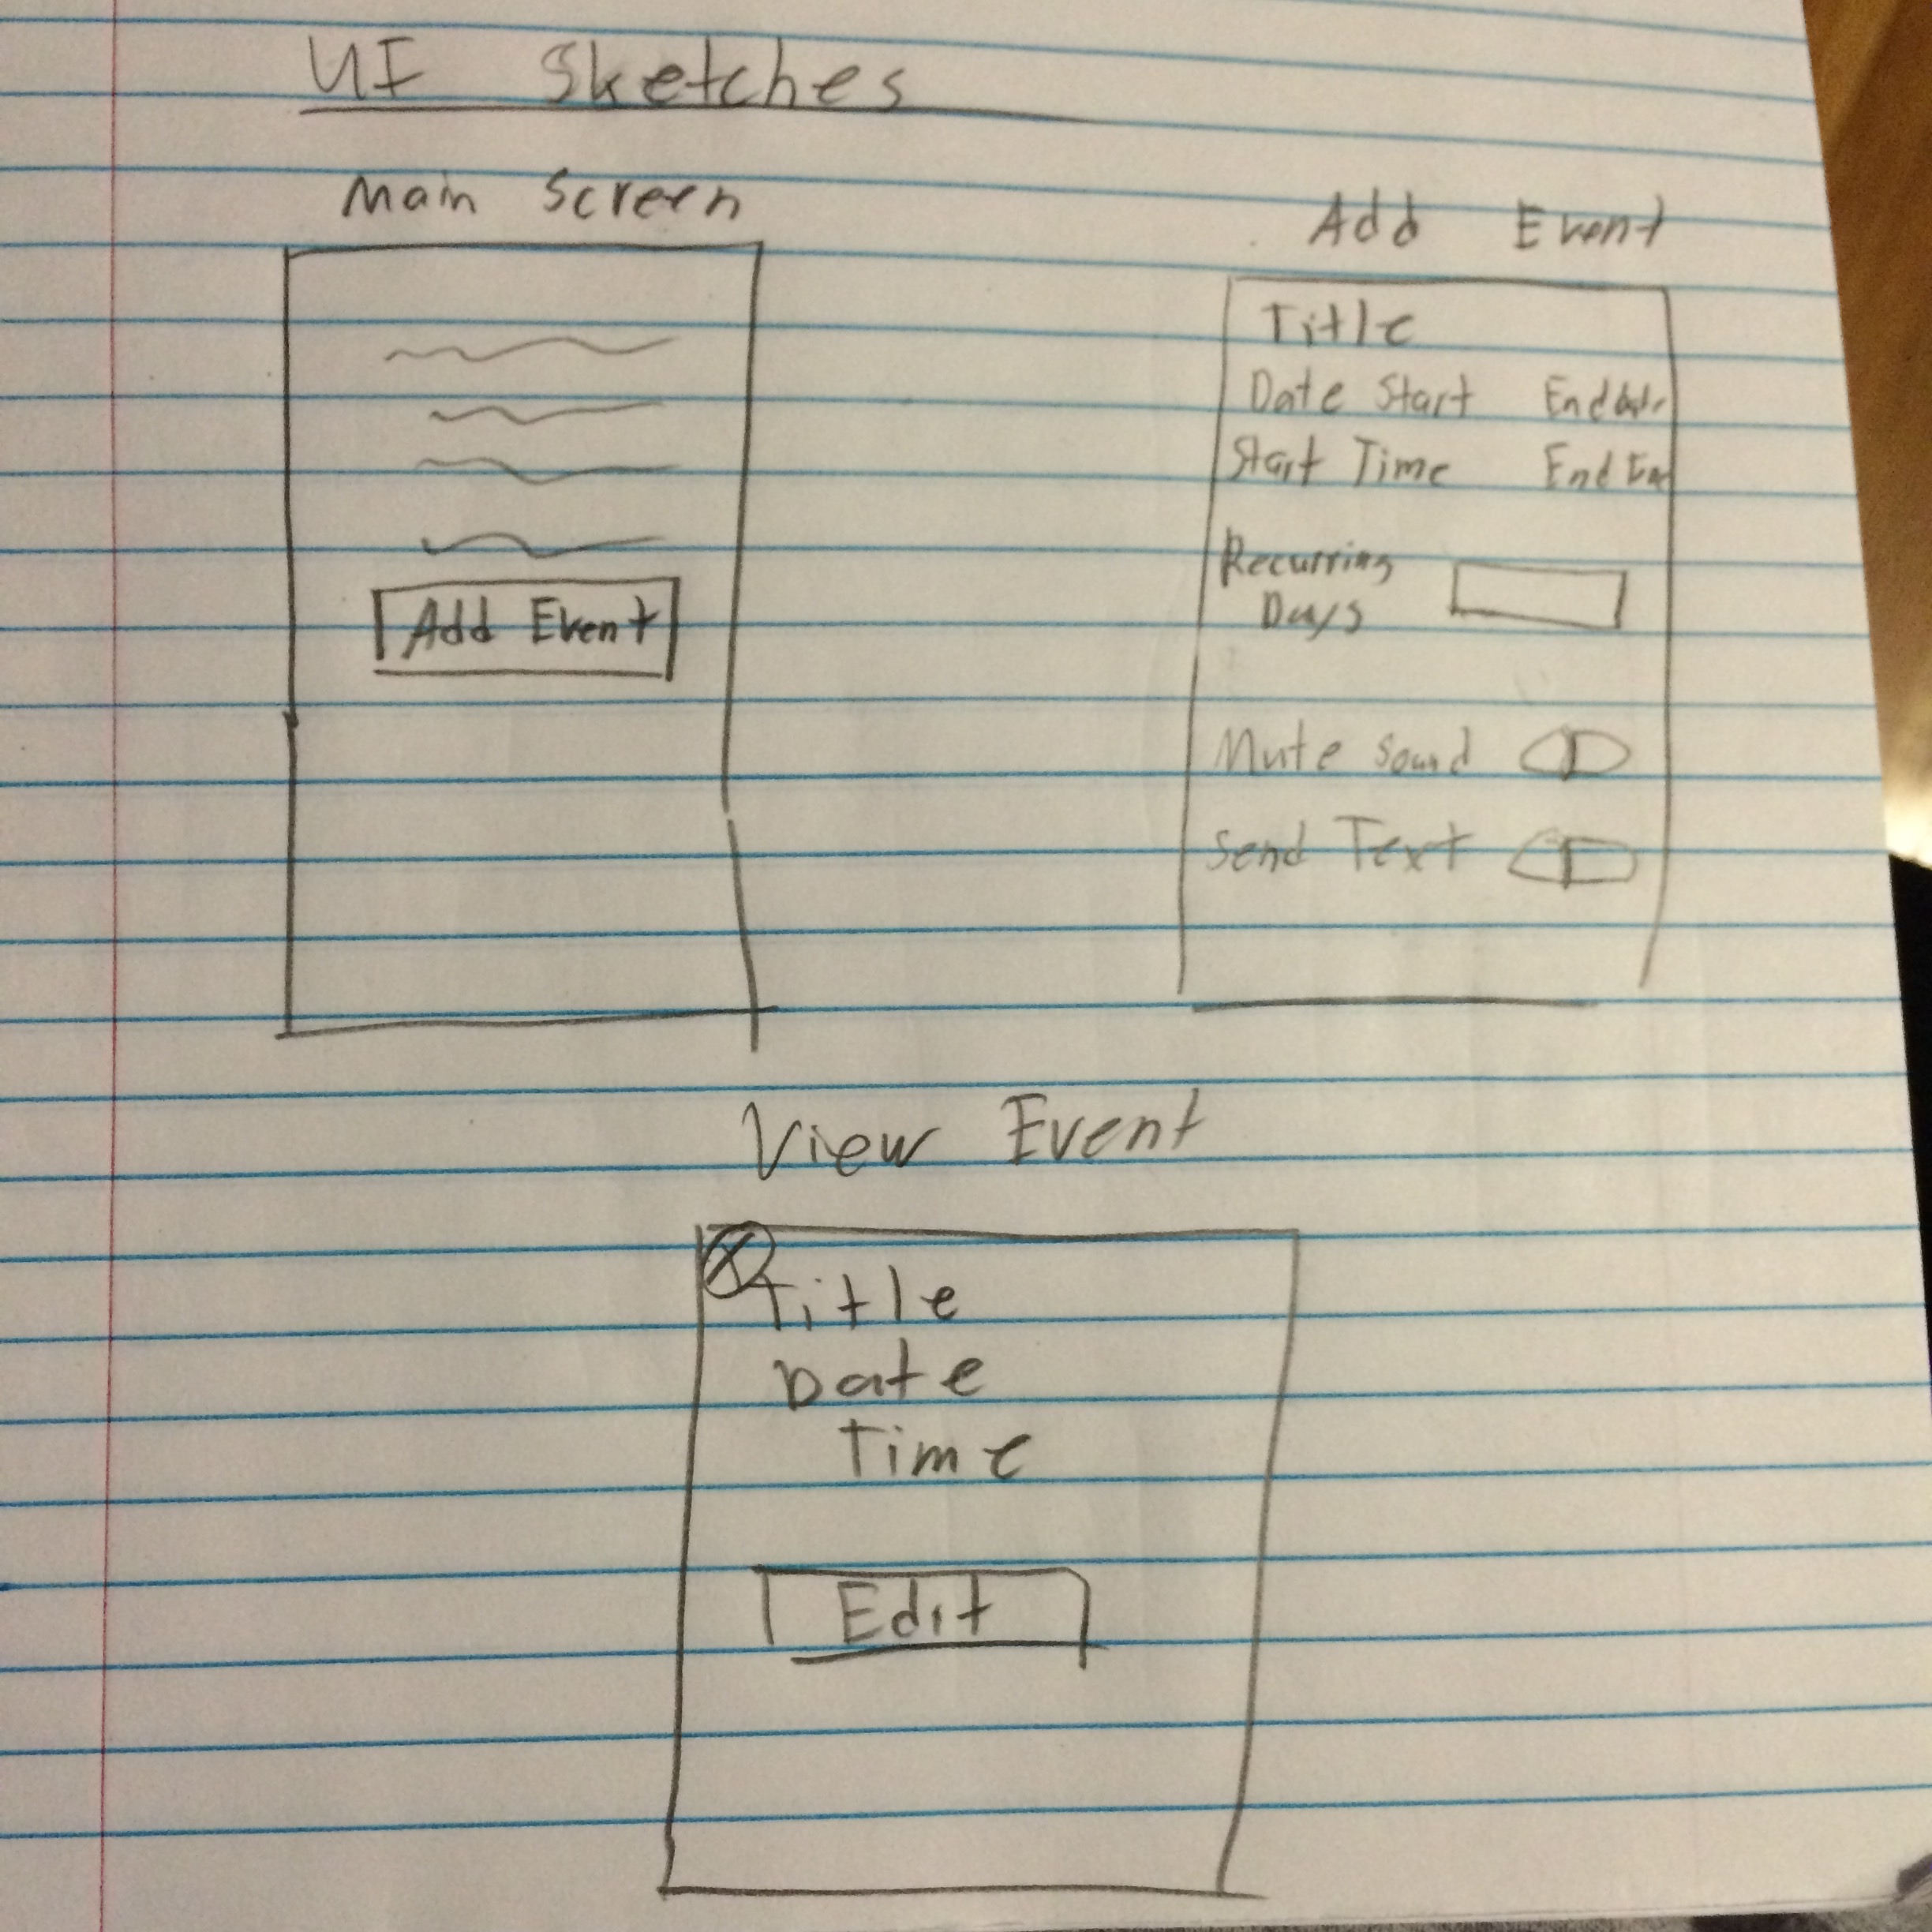 UI Sketches
Main Screen
Add Event
Add Event
Title
Date Start End date
Start Time End
Recurring
Days
Mute Sound
Send Text
View Event
X
Title
Date
Time
Edit